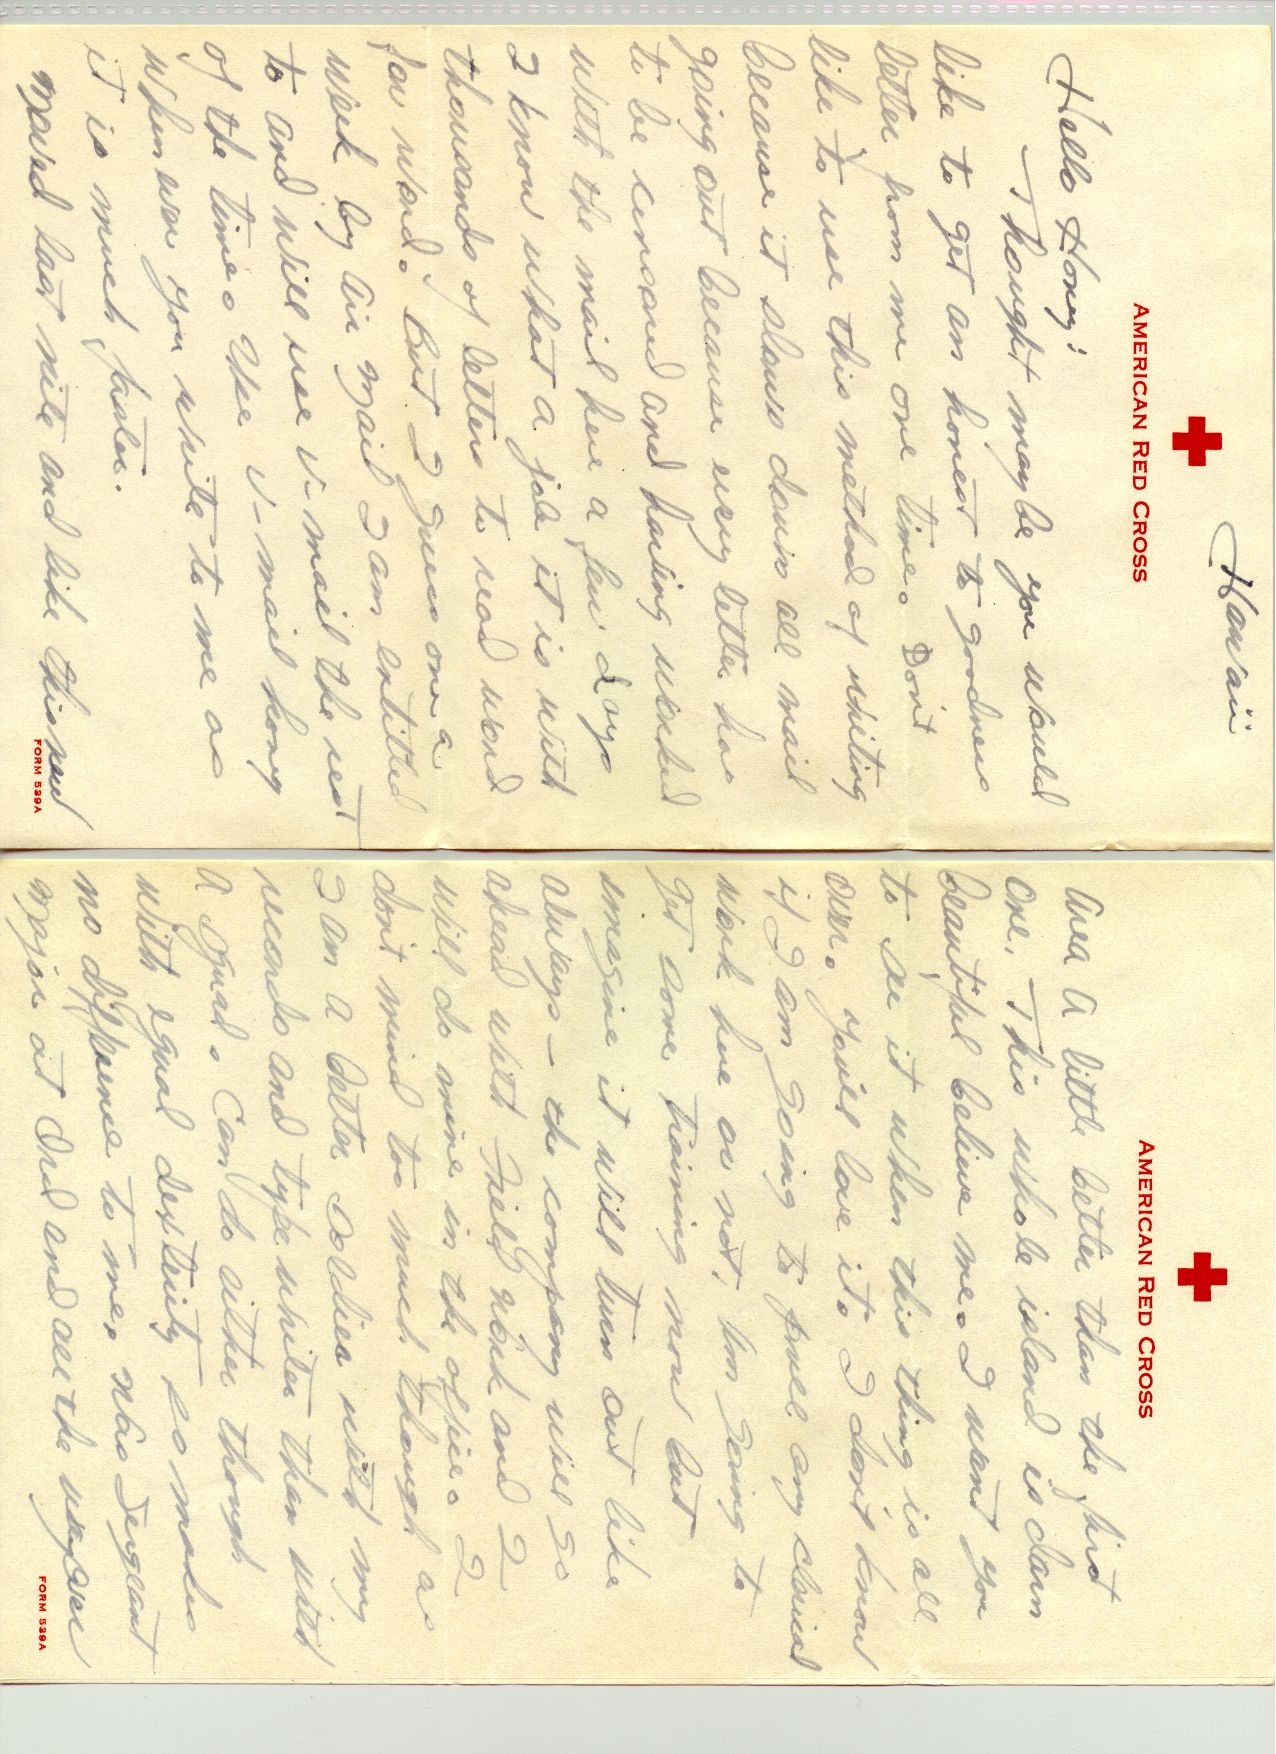 Hawaii
AMERICAN RED CROSS
Hello Honey:
Thought maybe you would
like to get an honest to goodness
letter from me one time. Don't
like to use this method of writing
because it slows down all mail
going out because every letter has
to be censored and having worked
with the mail here a few days
I know what a job it is with
thousands of letters to read word
for word. But I guess once a
week by air mail I am entitled
to and will use V-mail the rest
of the time. Use V-mail honey
when ever you write to me as
it is much faster.
Moved last nite and like this new
FORM 539A
AMERICAN RED CROSS
area a little better than the first
one. This whole island is darn
beautiful believe me. I want you
to see it when this thing is all
over. You'll love it. I don't know
if I am going to pull any clerical
work here or not. Am going to
get some training now but
imagine it will turn out like
always - the company will go
ahead with field work and I
will do mine in the office. I
don't mind too much though as
I am a better soldier with my
records and typewriter than with
a squad. Can do either though
with equal dexterity so makes
no difference to me. Was Sergeant
major at Ord and all the way over
FORM 539A